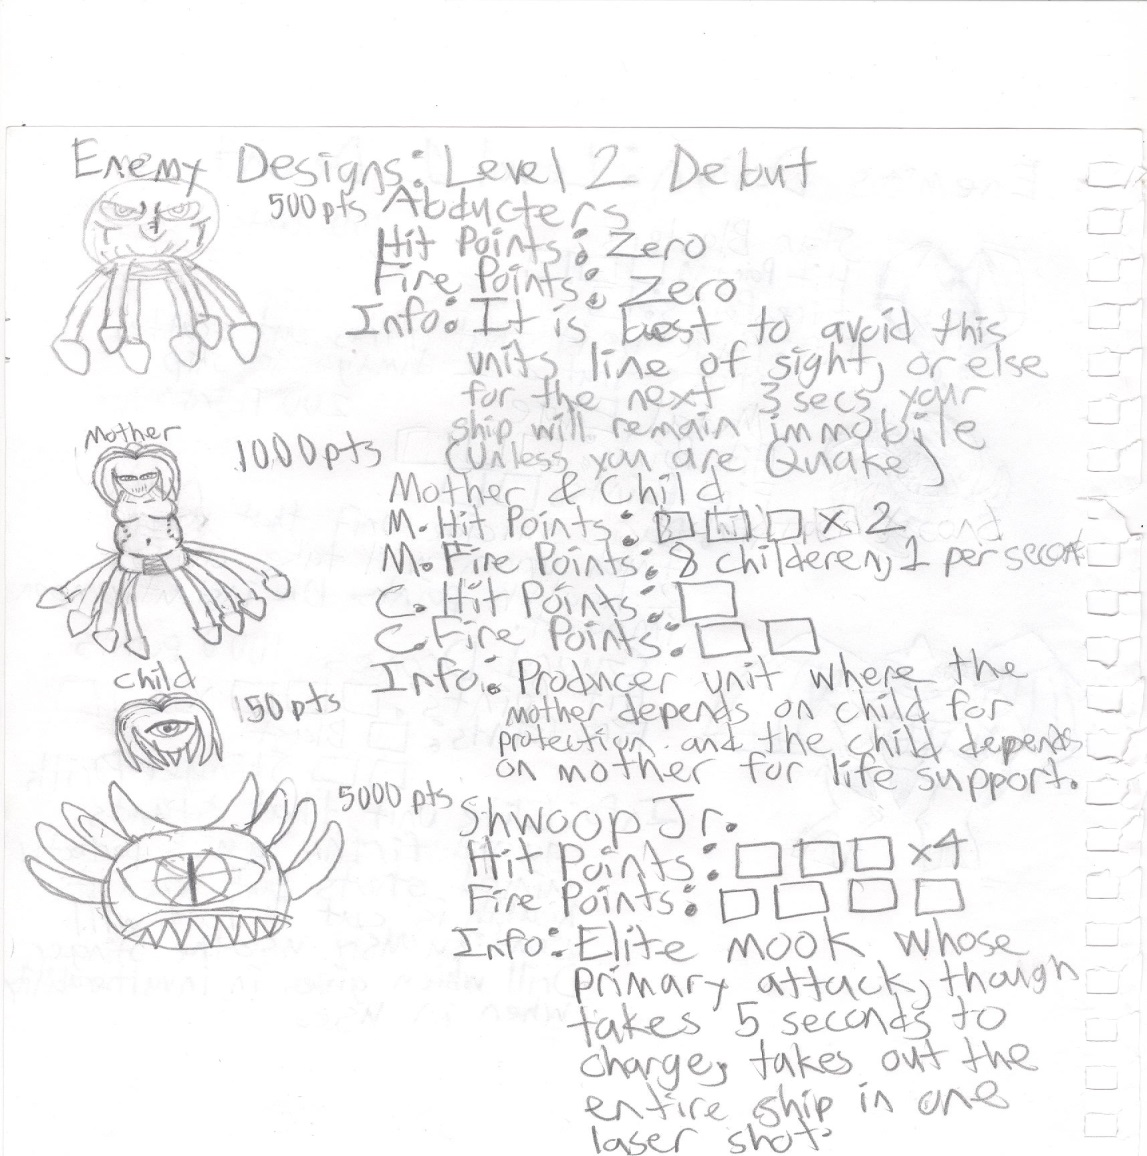 Enemy Designs: Level 2 Debut
500 pts Abducters
Hit Points: Zero
Fire Points: Zero
Info: It is best to avoid this
units line of sight, or else
for the next 3 secs your
ship will remain immobile
(unless you are Quake)
Mother
1000 pts
Mother & Child
M. Hit Points: x 2
M. Fire Points: 8 childeren, 1 per second
C. Hit Points:
C. Fire Points:
Child
150 pts
Info: Producer unit where the
mother depends on child for
protection and the child depends
on mother for life support.
5000 pts Shwoop Jr.
Hit Points: x4
Fire Points:
Info: Elite mook whose
primary attack, though
takes 5 seconds to
charge, takes out the
entire ship in one
laser shot.